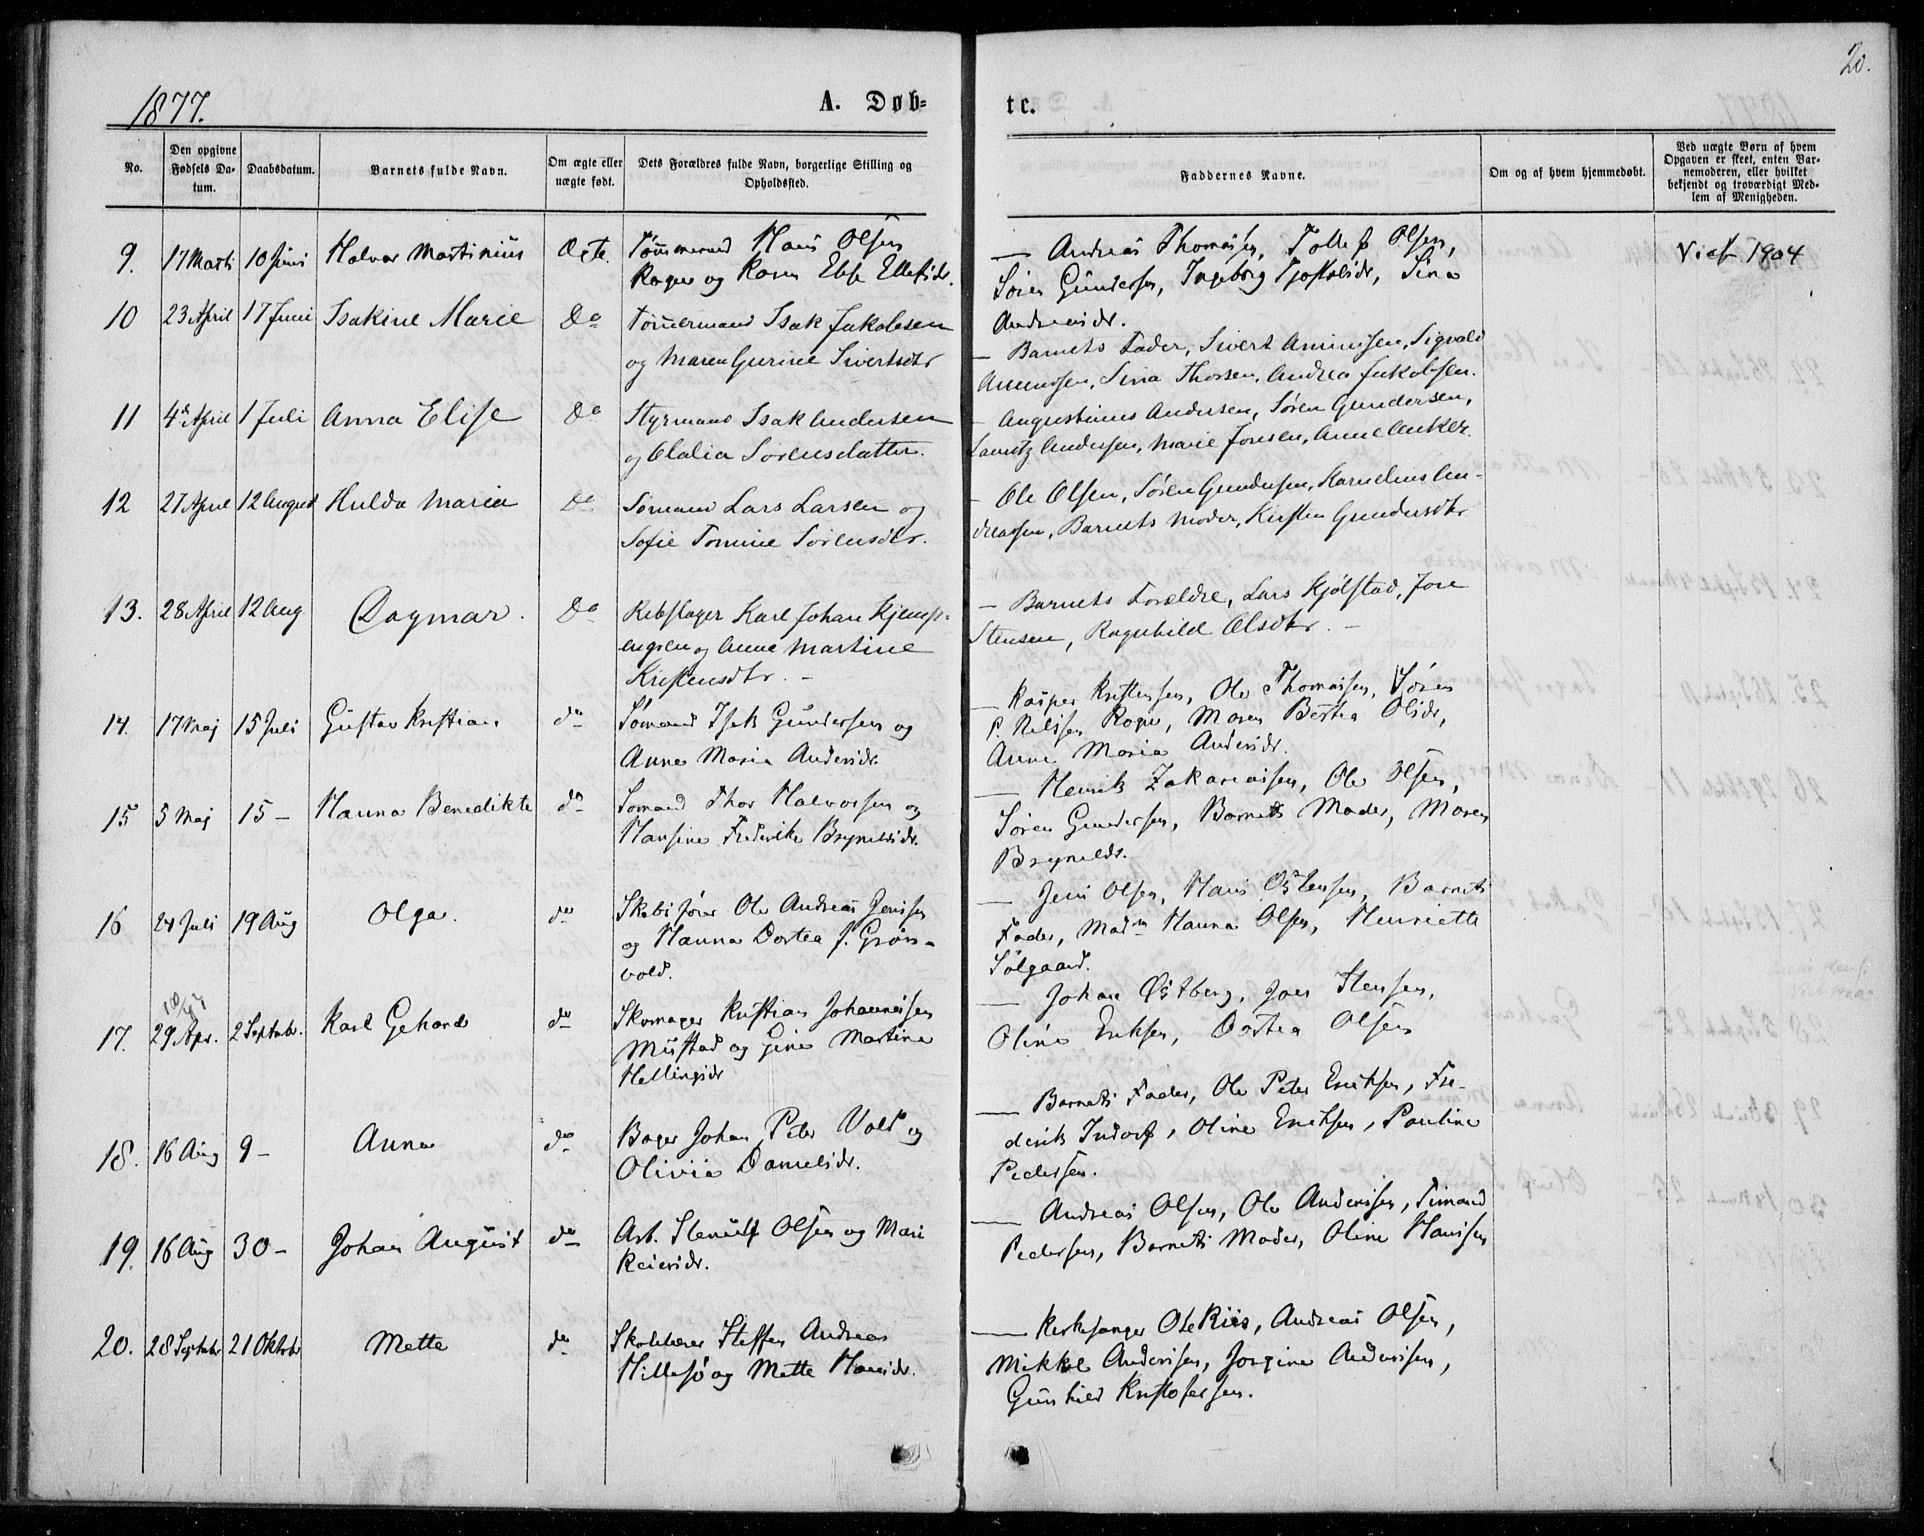 20.
1877.
A. Døb-
te.
No.
Den opgivne Fødsels Da-tum.
Daabsdatum.
Barnets fulde Navn.
Om ægte eller uægte født.
Dets Forældres fulde Navn, borgerlige Stilling og Opholdssted.
Faddernes Navne.
Om og af hvem hjemmedøbt.
Ved uægte Børn af hvem Opgaven er skeet, enten Bar-nemoderen, eller hvilket bekjendt og troværdigt Med-lem af Menigheden.
9. 17 Marts 10 Juni Halvor Martinius Ægte. Tømmermd Hans Olsen
Rogne og Karen Else Ellefsdr.
— Andreas Thomassen, Tollef Olsen,
Sören Gundersen, Ingeborg, Sina
Andreasdr.
Viet 1904
10 23 April 17 Juni Isakine Marie Do Tömmermand Isak Jakobsen
og Maren Gurine Sivertsdtr
— Barnets Fader, Sivert Amundsen, Sigvald
Amundsen, Sina Thorsen, Andrea Jakobsen.
11 4de April 1 Juli Anna Elise Do Styrmand Isak Andersen
og Olalia Sörensdatter.
— Augustinus Andersen, Sören Gundersen,
Lauritz Andersen, Marie Jonsen, Anne Anker.
12 27 April 12 August Hulda Maria Do Sömand Lars Larsen og
Sofie Tomine Sörensdtr.
— Ole Olsen, Sören Gundersen, Karnelius An-
dreassen, Barnets Moder, Kirsten Gundersdtr
13. 28 April 12 Aug Dagmar. Do Rebslager Karl Johan Kjemp-
engren og Anne Martine
Kristensdtr. —
— Barnets Forældre, Lars Kjölstad, Jon
Stensen, Ragnhild Olsdtr. —
14. 17 Maj 15 Juli Gustav Kristian do Sömand Isak Gundersen og
Anne Maria Andersdr.
— Kasper Kristensen, Ole Thomassen, Sören
P. Nilssen Rogne, Maren Bertea Olsdr,
Anne Maria Andersdr.
15 5 Maj 15 — Hanna Benedikte do Sömand Thor Halvorsen og
Hansine Frederikke Brynildsdr.
— Henrik Zakariassen, Ole Olsen,
Sören Gundersen, Barnets Moder, Maren
Brynilds.
16 24 Juli 19 Aug Olga. do Skibsförer Ole Andreas Jensen
og Hanna Dortea f. Grön-
vold.
— Jens Olsen, Hans Östensen, Barnets
Fader, Madm Hanna Olsen, Henriette
Sölgaard.
17. 29 Apr. 2 Septbr. Karl Gehard do Skomager Kristian Johannesen
Mustad og Gina Martine
Hellingsdr
— Johan Østberg, Joen Stensen,
Oline Eriksen, Dortea Olsen
18. 16 Aug 9 — Anna do Bager Johan Peter Vold og
Olivia Danielsdr.
— Barnets Fader, Ole Peter Eriksen, Fre-
derik Indorf, Oline Eriksen, Pauline
Pedersen.
19. 16 Aug 30 — Johan August do Arb. Stenulf Olsen og Mari
Reiersdr.
— Andreas Olsen, Ole Anderssen, Simand
Pedersen, Barnets Moder, Oline Hanssen
20. 28 Septbr 21 Oktbr Mette do Skolelærer Steffen Andreas
Hillesö og Mette Hansdr.
— Kirkesanger Ole Riis, Andreas Olsen,
Mikkel Anderssen, Jorgine Anderssen,
Gunhild Kristofersen.